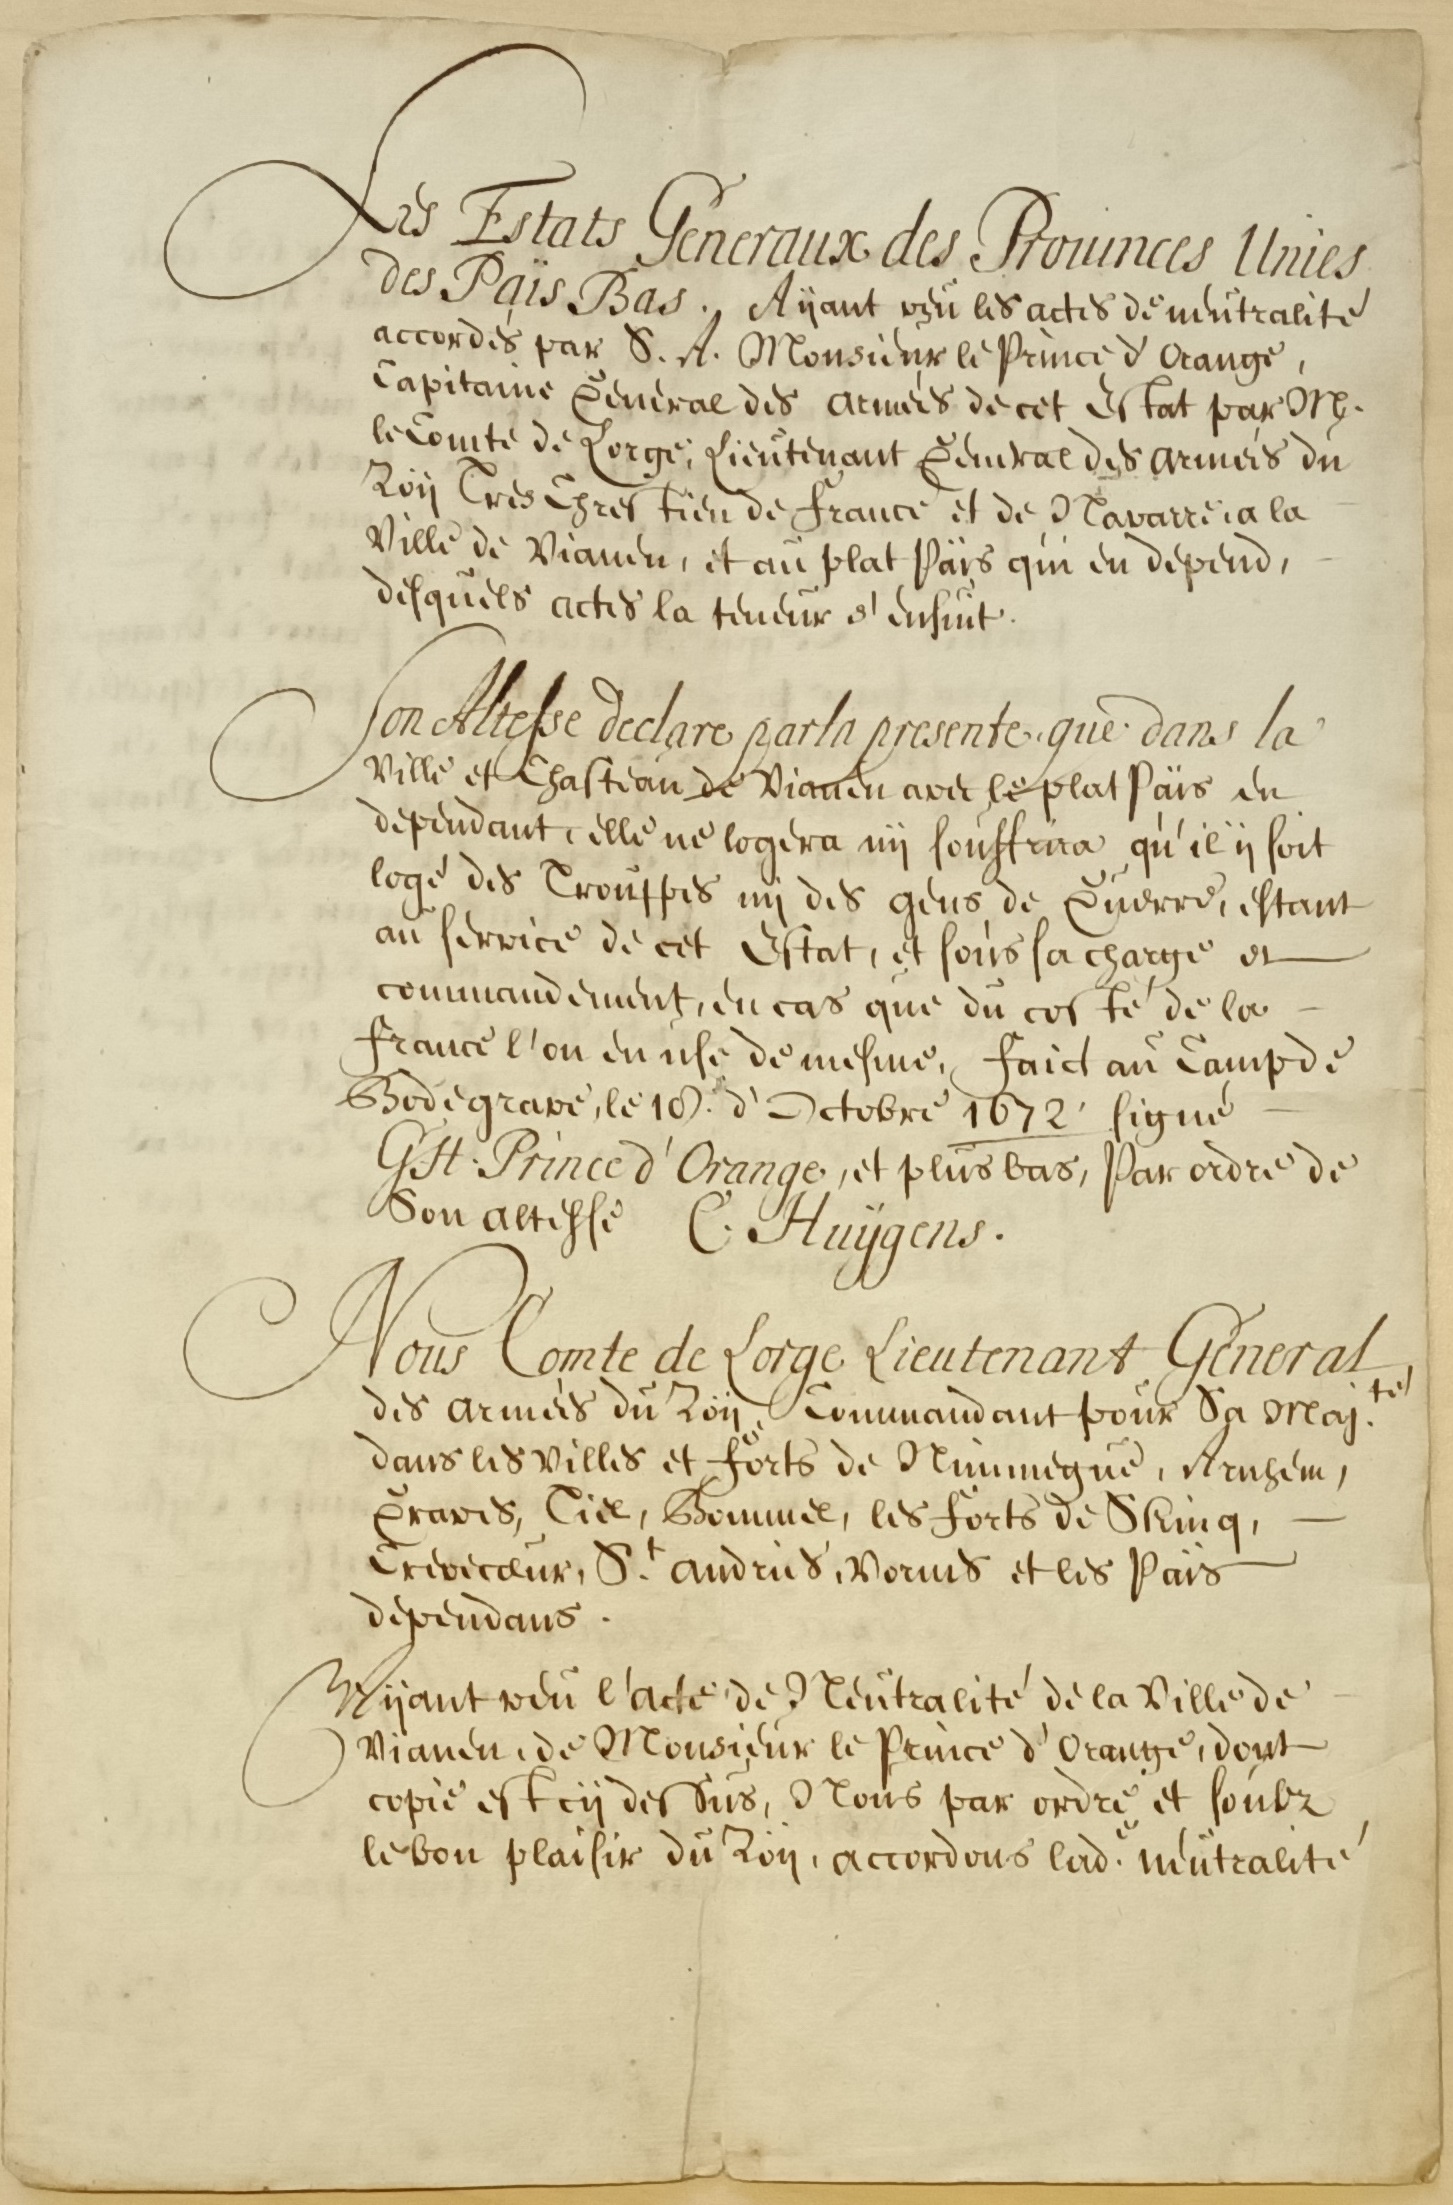 Les Estats Generaux des Prouinces Unies
des Païs Bas. Aÿant veu les actes de neutralité
accordés par S. A. Monsieur le Prince d'Orange,
Capitaine General des Armées de cet Estat par Mr.
le Comte de Lorge, Lieutenant General des Armées du
Roÿ Tres Chrestien de France et de Navarre, a la
Ville de Vianen, et au plat Païs qui en depend,
desquels actes la teneur s'ensuit.
Son Altesse declare par la presente que dans la
Ville et Chasteau de Vianen avec le plat Païs en
dependant, elle ne logera nÿ souffrira qu'il ÿ soit
logé des Trouppes nÿ des gens de Guerre, estant
au service de cet Estat, et sous sa charge et
commandement, en cas que du costé de la
France l'on en use de mesme, Faict au Camp de
Bodegrave, le 18e. d'Octobre 1672 signé
G H Prince d'Orange, et plus bas, Par ordre de
Son Altesse C. Huÿgens.
Nous Comte de Lorge Lieutenant General
des Armées du Roÿ, Commandant pour Sa Maj.té
dans les Villes et Forts de Nimmegue, Arnhem,
Graves, Tiel, Bommel, les Forts de Skinq,
Crevecœur, S.t Andries, Vorns et les Païs
dependans.
Aÿant veu l'acte de Neutralité de la Ville de
Vianen, de Monsieur le Prince d'Orange, dont
copie est cÿ dessus, Nous par ordre et soubz
le bon plaisir du Roÿ, accordons lad.e neutralité